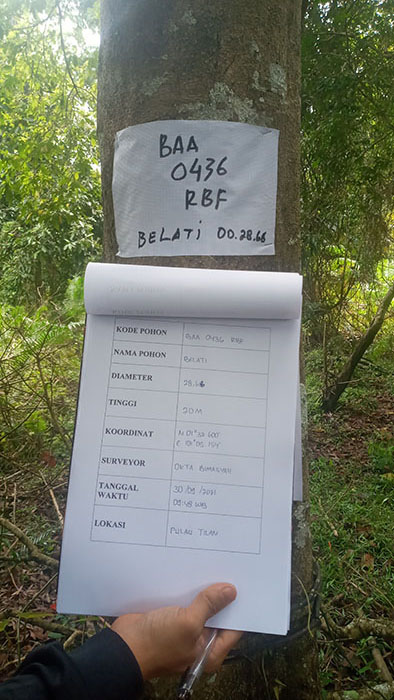 BAA
0436
RBF
BELATI 00.28.66
KODE POHON BAA 0436 RBF
NAMA POHON BELATI
DIAMETER 28.66
TINGGI 20M
KOORDINAT
SURVEYOR OKTA
TANGGAL WAKTU 30/09/2021
09:48 WIB
LOKASI PULAU TILAN